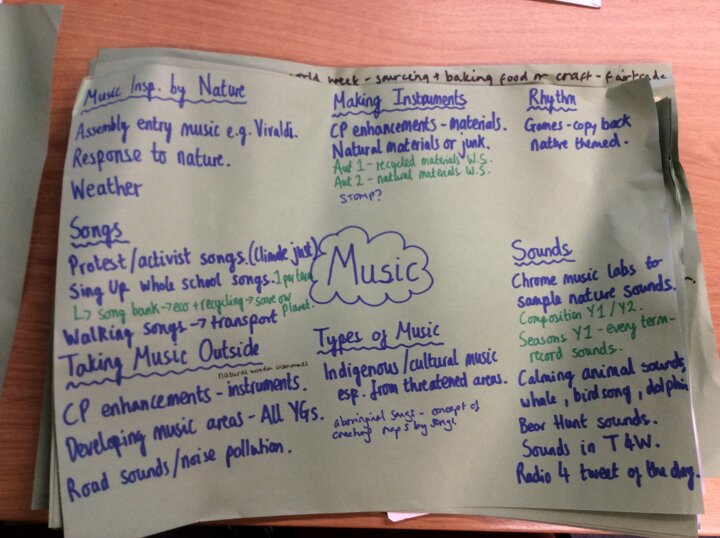 world week - sourcing + baking food or craft - fairtrade
Music Insp. by Nature
Assembly entry music e.g. Vivaldi.
Response to nature.
Weather
Making Instruments
CP enhancements - materials.
Natural materials or junk.
Aut 1 - recycled materials W.S.
Aut 2 - natural materials W.S.
STOMP?
Rhythm
Games - copy back
native themed.
Songs
Protest/activist songs. (Climate just)
Sing Up whole school songs. 1 per term
↳ song bank → eco + recycling → save our planet.
Walking songs → transport
Music
Taking Music Outside
natural wooden
CP enhancements - instruments.
Developing music areas - All YGs.
Road sounds/noise pollution.
Types of Music
Indigenous/cultural music
esp. from threatened areas.
aboriginal songs - concept of
creating maps by songs
Sounds
Chrome music labs to
sample nature sounds.
Composition Y1/Y2.
Seasons Y1 - every term -
record sounds.
Calming animal sounds,
whale, birdsong, dolphin
Bear Hunt sounds.
Sounds in T4W.
Radio 4 tweet of the day.